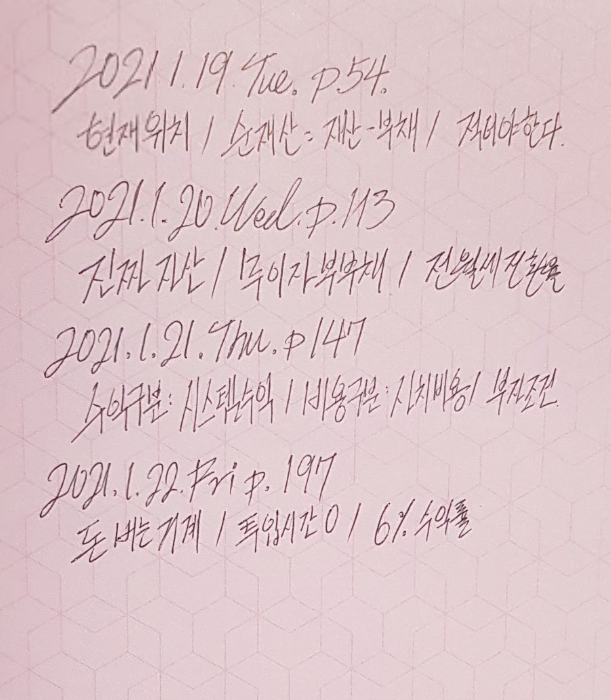 2021. 1. 19. Tue. p.54.
현재위치 / 순재산 = 재산-부채 / 적더야한다.
2021. 1. 20. Wed. p. 113
진짜 자산 / 무이자부부채 / 전월세전환율
2021. 1. 21. Thu. p 147
수익구분: 시스템수익 / 비용구분: 사치비용 / 부자조건
2021. 1. 22. Fri p. 197
돈 버는 기계 / 투입시간 0 / 6% 수익률